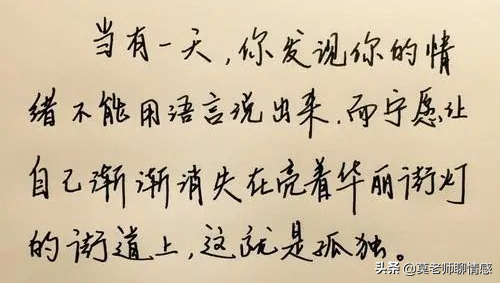 当有一天，你发现你的情
绪不能用语言说出来，而宁愿让
自己渐渐消失在亮着华丽街灯
的街道上，这就是孤独。
头条 @莫老师聊情感